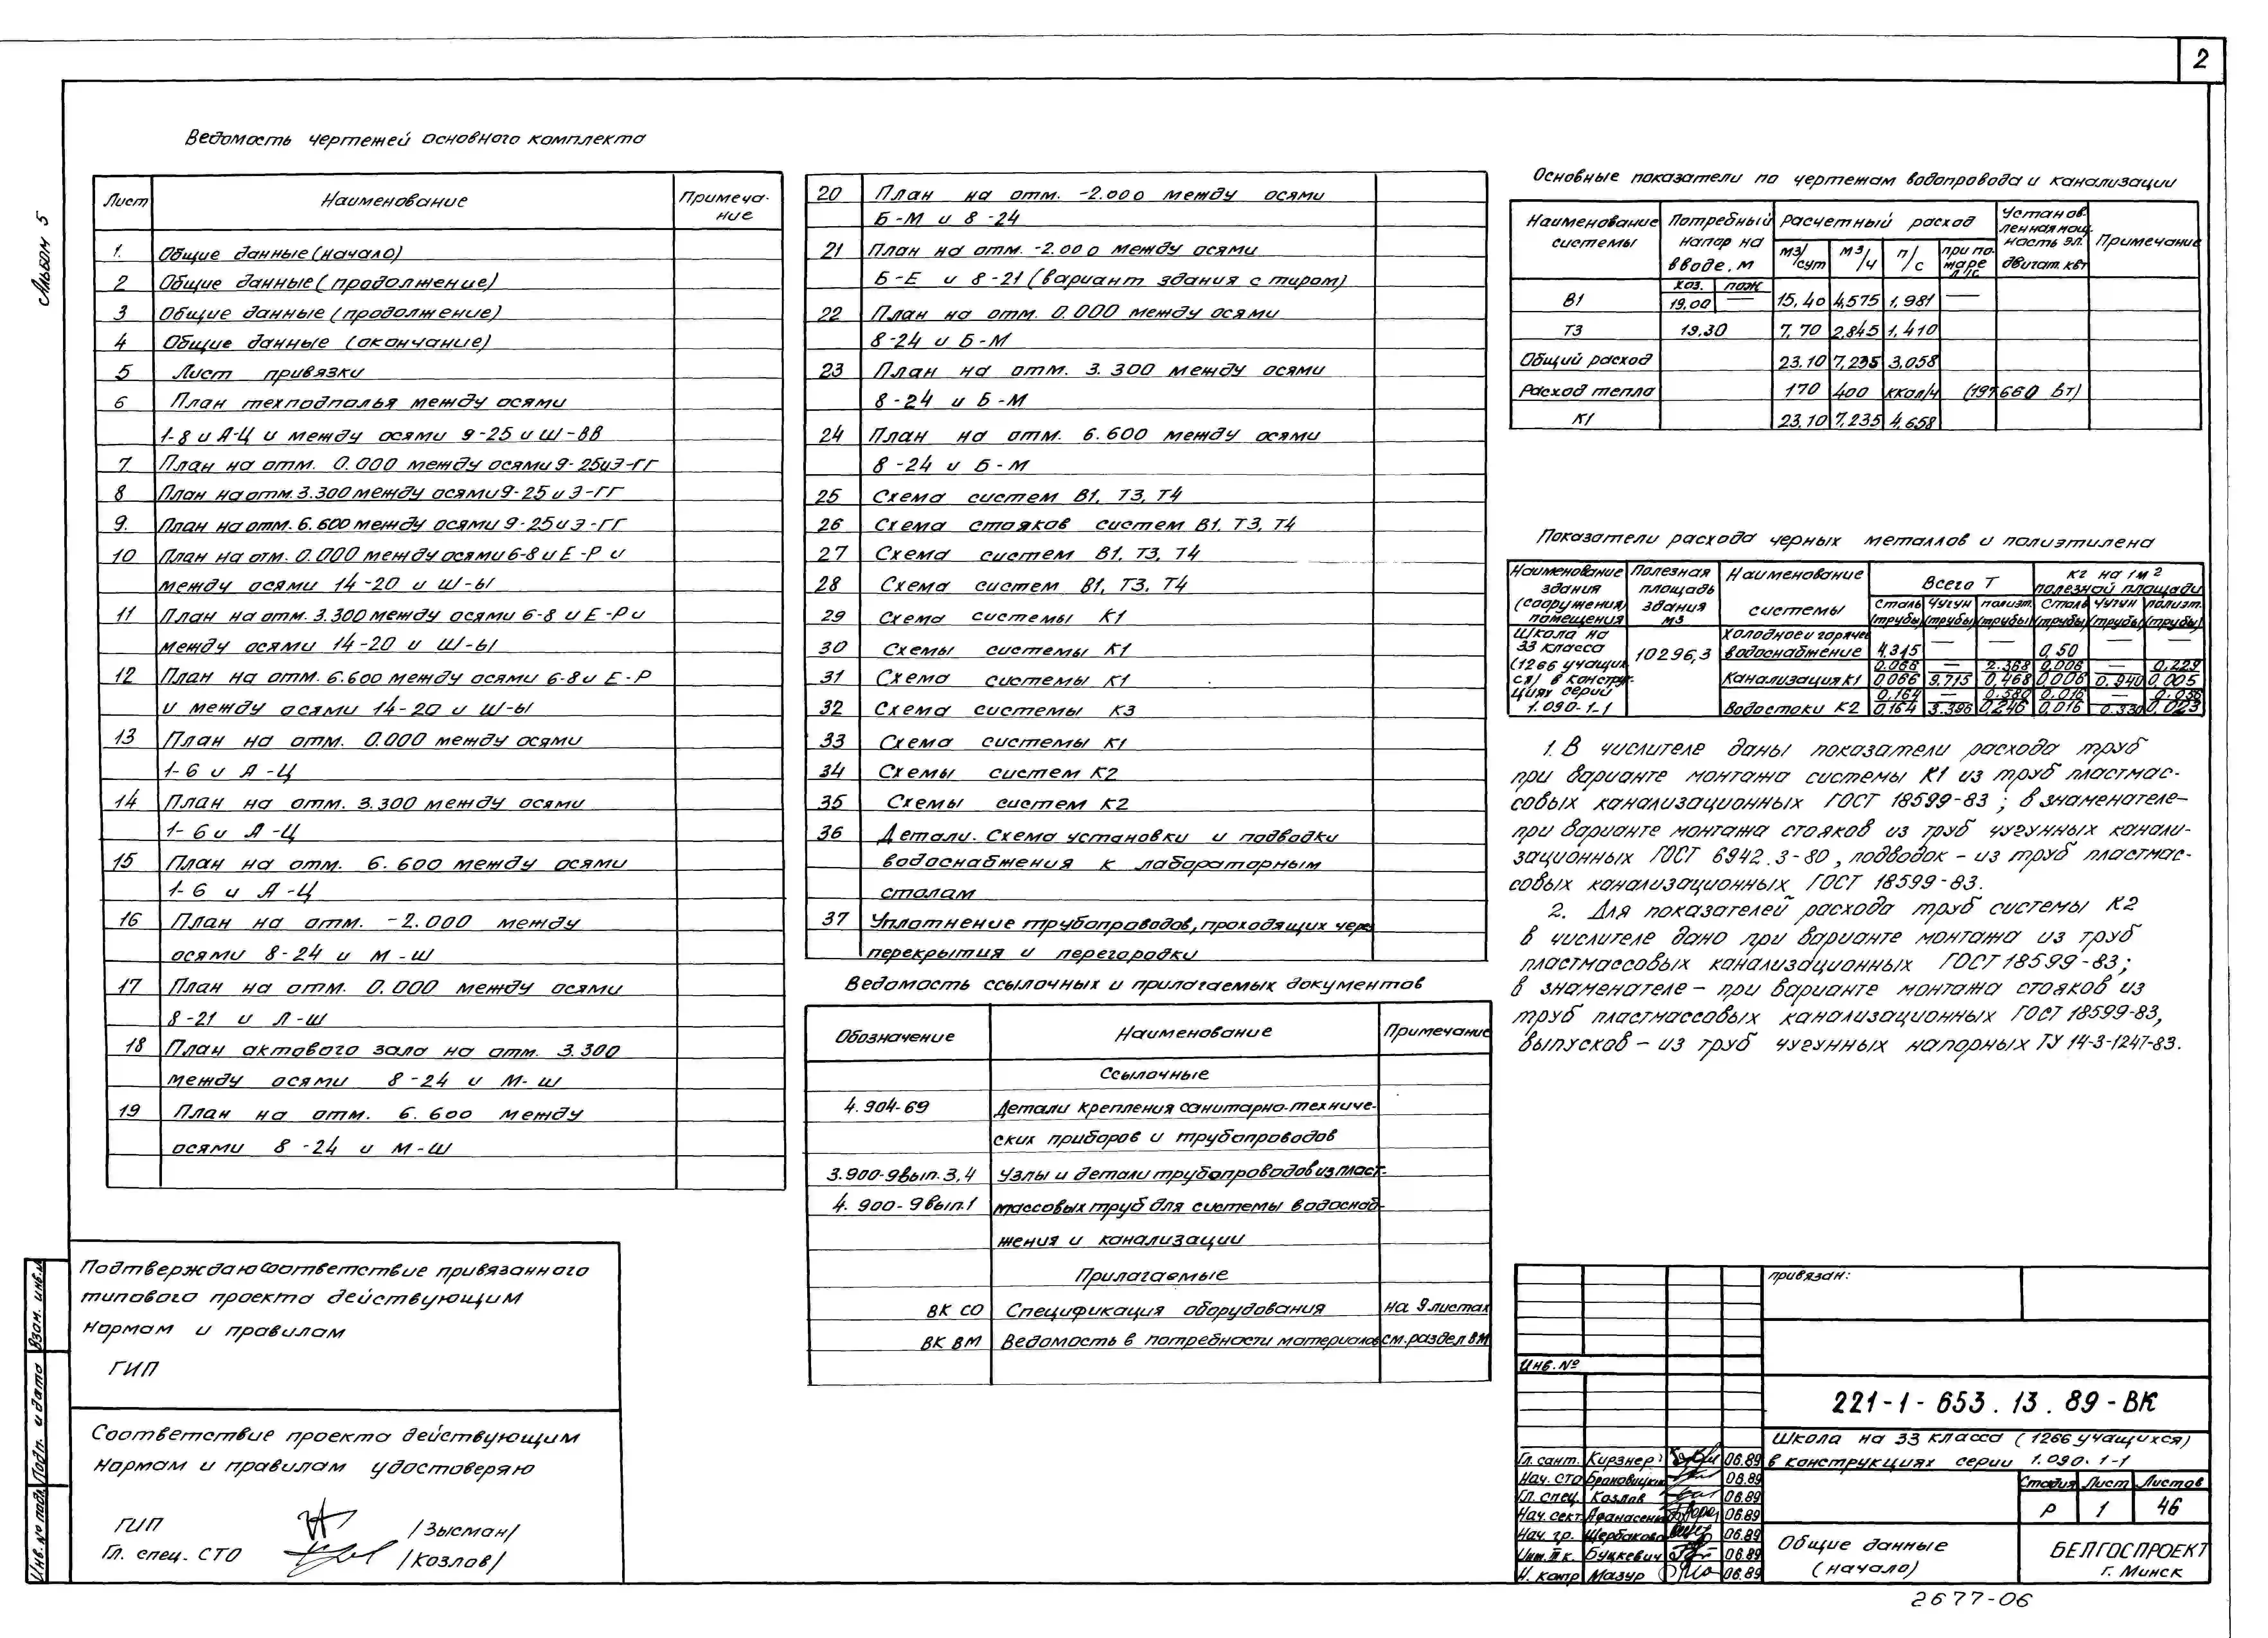 2
Альбом 5
Ведомость чертежей основного комплекта
Лист Наименование Примеча-
ние
1. Общие данные (начало)
2 Общие данные (продолжение)
3 Общие данные (продолжение)
4 Общие данные (окончание)
5 Лист привязки
6 План техподполья между осями
1-8 и А-Ц и между осями 9-25 и Ш-ВВ
7. План на отм. 0.000 между осями 9-25 и Э-ГГ
8 План на отм. 3.300 между осями 9-25 и Э-ГГ
9. План на отм. 6.600 между осями 9-25 и Э-ГГ
10 План на отм. 0.000 между осями 6-8 и Е-Р и
между осями 14-20 и Ш-Ы
11 План на отм. 3.300 между осями 6-8 и Е-Р и
между осями 14-20 и Ш-Ы
12 План на отм. 6.600 между осями 6-8 и Е-Р
и между осями 14-20 и Ш-Ы
13 План на отм. 0.000 между осями
1-6 и А-Ц
14 План на отм. 3.300 между осями
1-6 и А-Ц
15 План на отм. 6.600 между осями
1-6 и А-Ц
16 План на отм. -2.000 между
осями 8-24 и М-Ш
17 План на отм. 0.000 между осями
8-21 и Л-Ш
18 План актового зала на отм. 3.300
между осями 8-24 и М-Ш
19 План на отм. 6.600 между
осями 8-24 и М-Ш
20 План на отм. -2.000 между осями
Б-М и 8-24
21 План на отм. -2.000 между осями
Б-Е и 8-21 (вариант здания с тиром)
22 План на отм. 0.000 между осями
8-24 и Б-М
23 План на отм. 3.300 между осями
8-24 и Б-М
24 План на отм. 6.600 между осями
8-24 и Б-М
25 Схема систем В1, Т3, Т4
26 Схема стояков систем В1, Т3, Т4
27 Схема систем В1, Т3, Т4
28 Схема систем В1, Т3, Т4
29 Схема системы К1
30 Схемы системы К1
31 Схема системы К1
32 Схема системы К3
33 Схема системы К1
34 Схемы систем К2
35 Схемы систем К2
36 Детали. Схема установки и подводки
водоснабжения к лабораторным
столам
37 Уплотнение трубопроводов, проходящих чере
перекрытия и перегородки
Ведомость ссылочных и прилагаемых документов
Обозначение Наименование Примечание
Ссылочные
4.904-69 Детали крепления санитарно-техниче-
ских приборов и трубопроводов
3.900-9 вып. 3,4 Узлы и детали трубопроводов из пласт-
4.900-9 вып.1 массовых труб для системы водоснаб-
жения и канализации
Прилагаемые
ВК СО Спецификация оборудования на 9 листах
ВК ВМ Ведомость в потребности материалов см. раздел ВМ
Основные показатели по чертежам водопровода и канализации
Наименование системы Потребный напор на вводе, м Расчетный расход Установ-ленная мощ-ность эл. двигат. квт Примечание
м3/сут м3/ч л/с при пожаре л/с
хоз. пож
В1 19.00 — 15,40 4,575 1,981 —
Т3 19,30 7,70 2,845 1,410
Общий расход 23.10 7,235 3,058
Расход тепла 170 400 ккал/ч (197660 Вт)
К1 23,10 7,235 4,658
Показатели расхода черных металлов и полиэтилена
Наименование здания (сооружения) помещения Полезная площадь здания м3 Наименование системы Всего Т кг на 1м2 полезной площади
Сталь (трубы) Чугун (трубы) полиэт. (трубы) Сталь (трубы) Чугун (трубы) полиэт. (трубы)
Школа на 33 класса (1266 учащихся) в конструк-циях серии 1.090-1-1 10296,3
Холодное и горячее водоснабжение 4.345 — — 0,50 — —
0.066 — 2.368 0.006 — 0.229
Канализация К1 0,066 9.715 0,468 0,006 0.940 0,005
0.164 — 0.380 0.016 — 0.036
Водостоки К2 0,164 3.396 0,246 0,016 0.330 0,023
1. В числителе даны показатели расхода труб
при варианте монтажа системы К1 из труб пластмас-
совых канализационных ГОСТ 18599-83; в знаменателе-
при варианте монтажа стояков из труб чугунных канали-
зационных ГОСТ 6942.3-80, подводок - из труб пластмас-
совых канализационных ГОСТ 18599-83.
2. Для показателей расхода труб системы К2
в числителе дано при варианте монтажа из труб
пластмассовых канализационных ГОСТ 18599-83;
в знаменателе - при варианте монтажа стояков из
труб пластмассовых канализационных ГОСТ 18599-83,
выпусков - из труб чугунных напорных ТУ 14-3-1247-83.
Подтверждаю соответствие привязанного
типового проекта действующим
нормам и правилам
ГИП
Соответствие проекта действующим
нормам и правилам удостоверяю
ГИП /Зысман/
Гл. спец. СТО /Козлов/
Взам. инв.№
Подп. и дата
Инв. № подл.
привязан:
Инв. №
221-1-653.13.89-ВК
Школа на 33 класса (1266 учащихся)
в конструкциях серии 1.090.1-1
Гл. сант. Кирзнер 06.89
Нач. СТО 06.89
Гл. спец. Козлов 06.89
Нач. сект. 06.89
Нач. гр. Щербакова 06.89
Инж. IIк. Буцкевич 06.89
Н. контр Мазур 06.89
Стадия Лист Листов
Р 1 46
Общие данные
(начало)
БЕЛГОСПРОЕКТ
г. Минск
2677-06